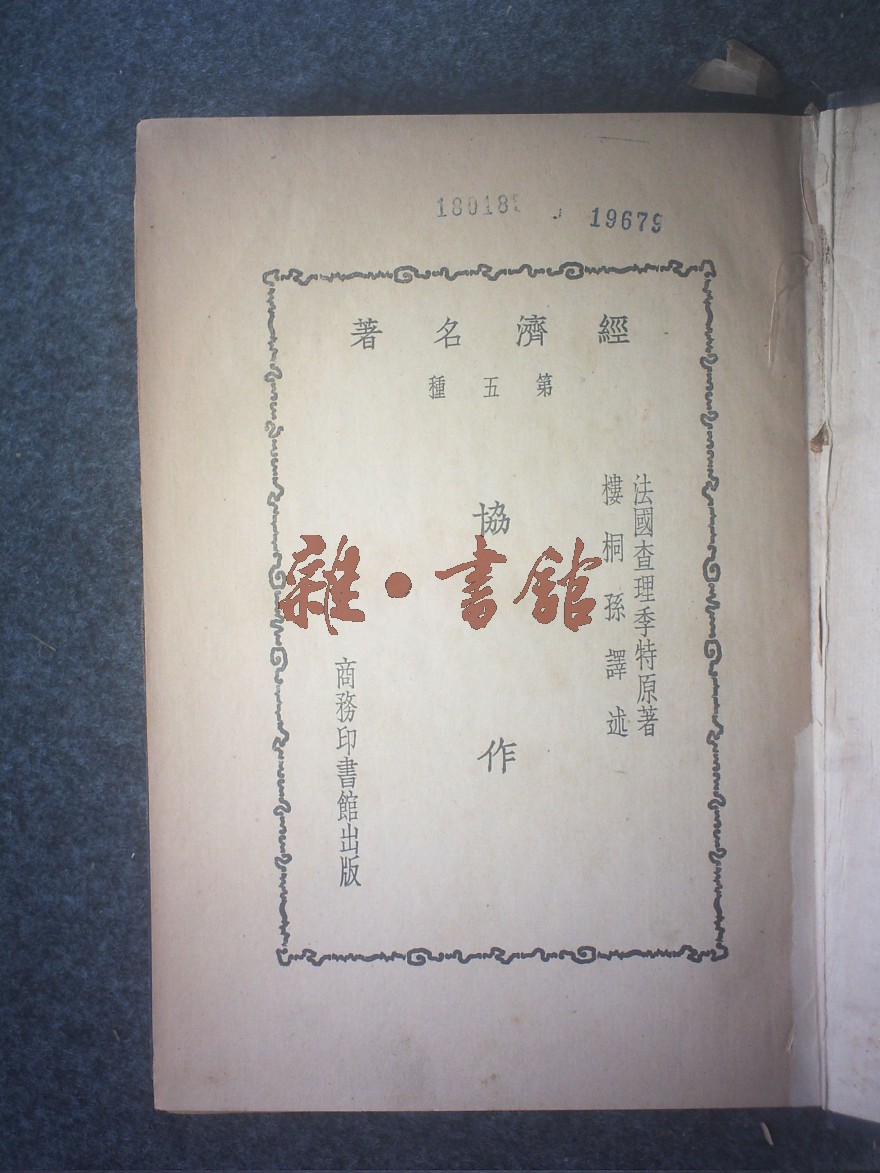 180185 19679
經濟名著
第五種
法國查理季特原著
樓桐孫譯述
協作
商務印書館出版
雜·書館